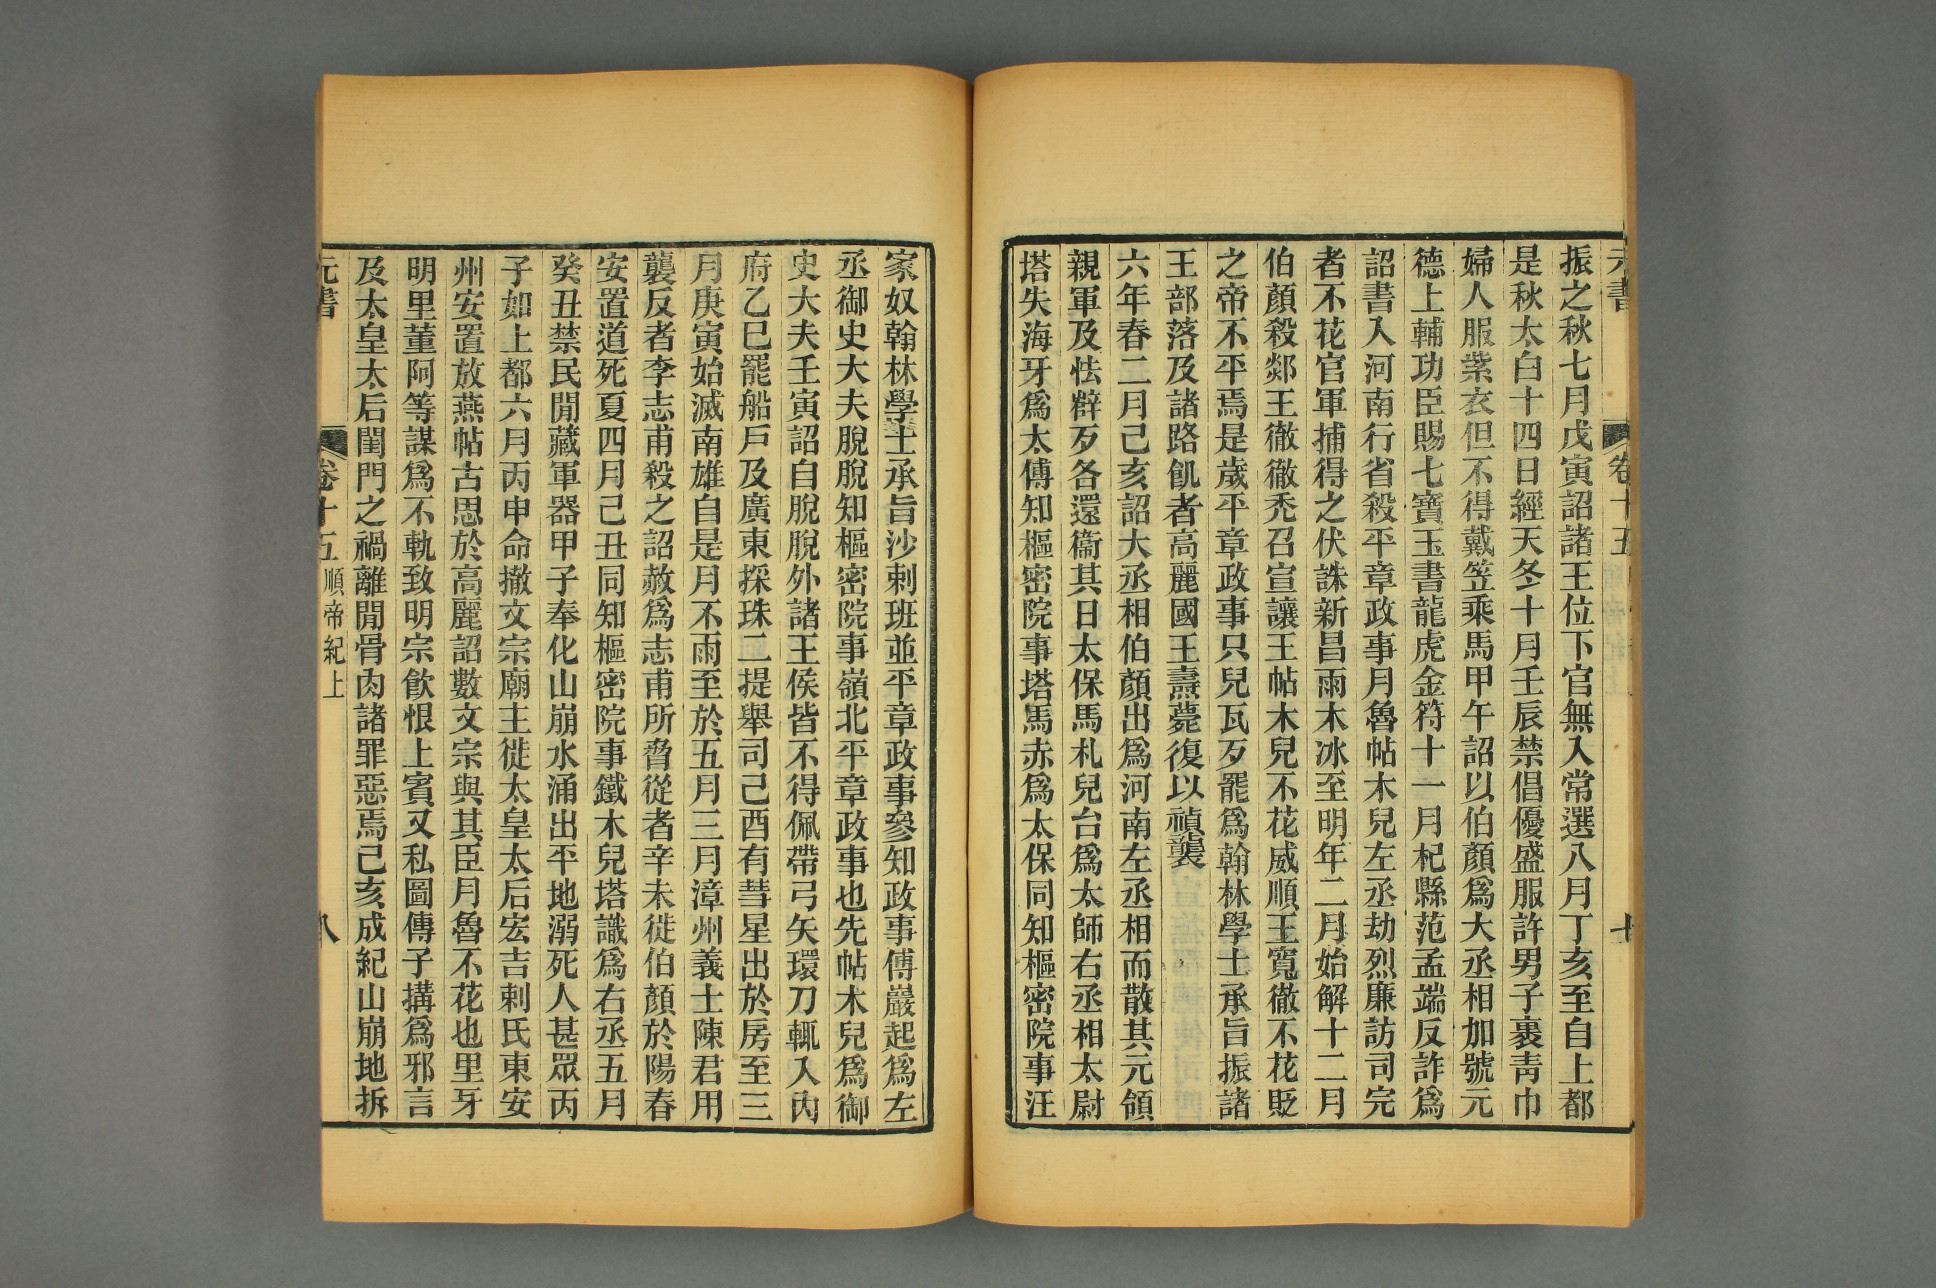 元書 卷十五 七
振之秋七月戊寅詔諸王位下官無入常選八月丁亥至自上都
是秋太白十四日經天冬十月壬辰禁倡優盛服許男子裹靑巾
婦人服紫衣但不得戴笠乘馬甲午詔以伯顏爲大丞相加號元
德上輔功臣賜七寶玉書龍虎金符十一月杞縣范孟端反詐爲
詔書入河南行省殺平章政事月魯帖木兒左丞劫烈廉訪司完
者不花官軍捕得之伏誅新昌雨木冰至明年二月始解十二月
伯顏殺郯王徹徹禿召宣讓王帖木兒不花威順王寬徹不花貶
之帝不平焉是歲平章政事只兒瓦歹罷爲翰林學士承旨振諸
王部落及諸路飢者高麗國王燾薨復以禎襲
六年春二月己亥詔大丞相伯顏出爲河南左丞相而散其元領
親軍及怯辥歹各還衞其日太保馬札兒台爲太師右丞相太尉
塔失海牙爲太傅知樞密院事塔馬赤爲太保同知樞密院事汪
家奴翰林學士承旨沙剌班並平章政事參知政事傅巖起爲左
丞御史大夫脫脫知樞密院事嶺北平章政事也先帖木兒爲御
史大夫壬寅詔自脫脫外諸王侯皆不得佩帶弓矢環刀輒入內
府乙巳罷船戶及廣東採珠二提舉司己酉有彗星出於房至三
月庚寅始滅南雄自是月不雨至於五月三月漳州義士陳君用
襲反者李志甫殺之詔赦爲志甫所脅從者辛未徙伯顏於陽春
安置道死夏四月己丑同知樞密院事鐵木兒塔識爲右丞五月
癸丑禁民閒藏軍器甲子奉化山崩水涌出平地溺死人甚眾丙
子如上都六月丙申命撤文宗廟主徙太皇太后宏吉剌氏東安
州安置放燕帖古思於高麗詔數文宗與其臣月魯不花也里牙
明里董阿等謀爲不軌致明宗飮恨上賓又私圖傳子搆爲邪言
及太皇太后閨門之禍離閒骨肉諸罪惡焉己亥成紀山崩地拆
元書 卷十五 順帝紀上 八